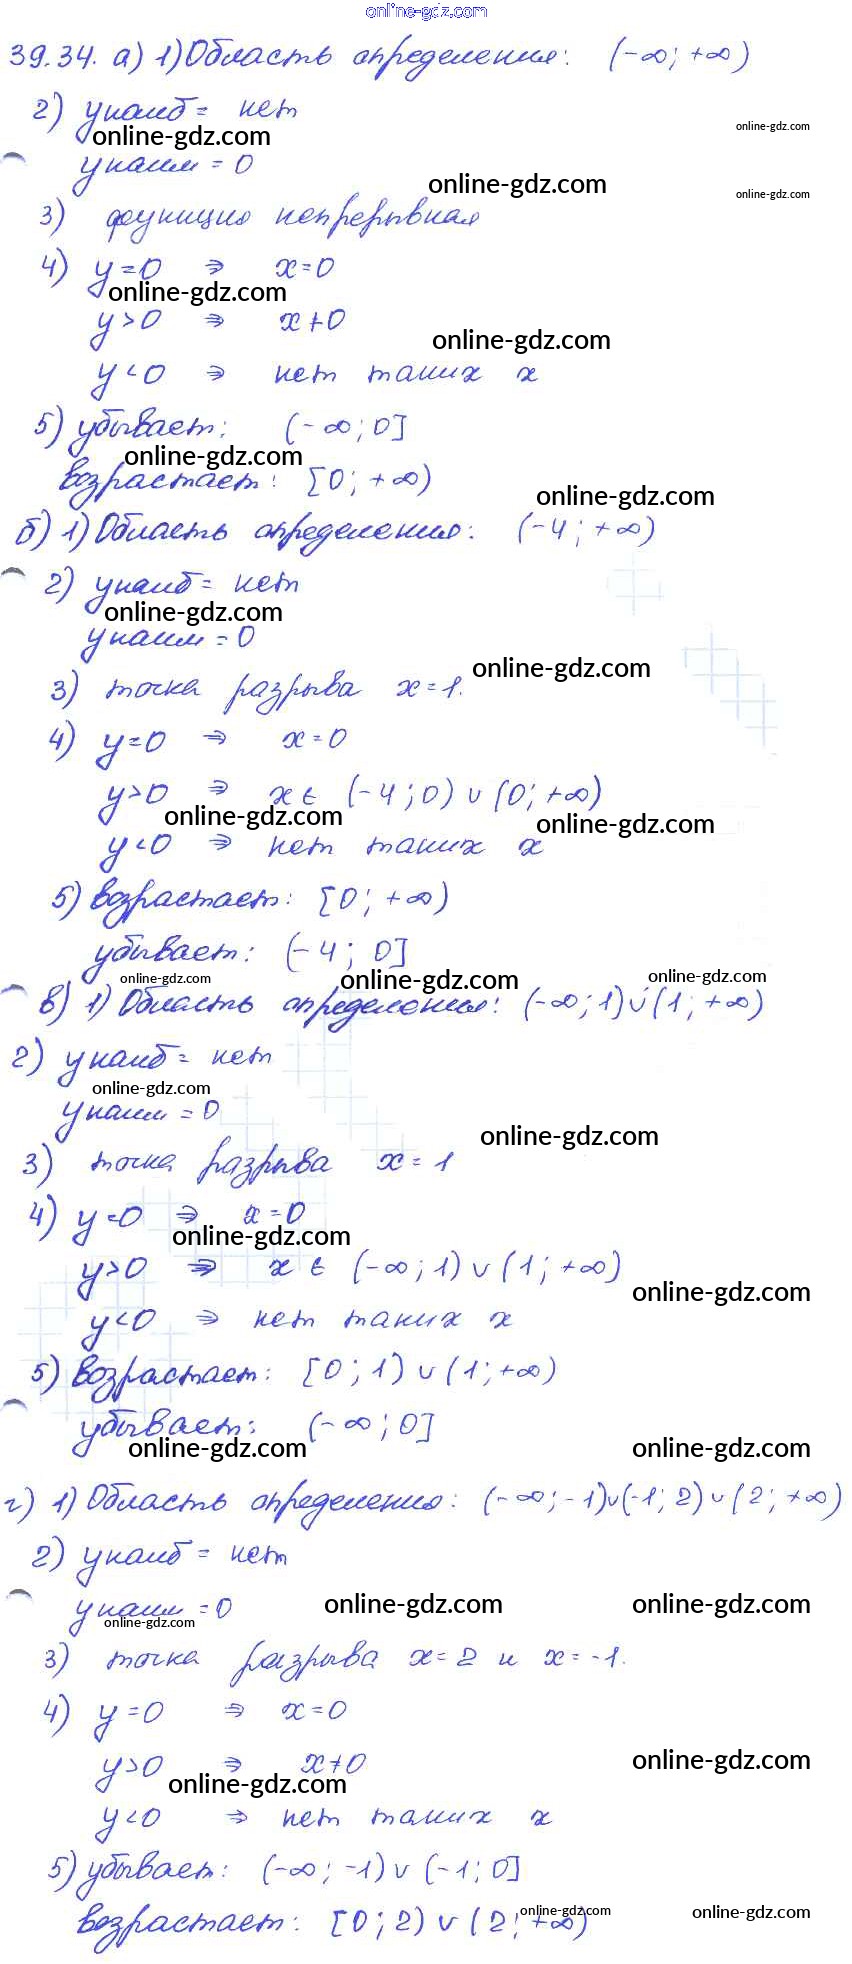 online-gdz.com
39.34. а) 1) Область определения: (-∞; +∞)
2) yнаиб = нет
online-gdz.com
online-gdz.com
yнаим = 0
online-gdz.com
online-gdz.com
3) функция непрерывная
4) y=0 ⇒ x=0
online-gdz.com
y>0 ⇒ x≠0
online-gdz.com
y<0 ⇒ нет таких x
5) убывает: (-∞; 0]
online-gdz.com
возрастает: [0; +∞)
online-gdz.com
б) 1) Область определения: (-4; +∞)
2) yнаиб = нет
online-gdz.com
yнаим = 0
online-gdz.com
3) точка разрыва x=1.
4) y=0 ⇒ x=0
y>0 ⇒ x∈ (-4; 0) ∪ (0; +∞)
online-gdz.com
online-gdz.com
y<0 ⇒ нет таких x
5) возрастает: [0; +∞)
убывает: (-4; 0]
online-gdz.com
online-gdz.com
online-gdz.com
в) 1) Область определения: (-∞; 1) ∪ (1; +∞)
2) yнаиб = нет
online-gdz.com
yнаим = 0
online-gdz.com
3) точка разрыва x=1
4) y=0 ⇒ x=0
online-gdz.com
y>0 ⇒ x ∈ (-∞; 1) ∪ (1; +∞)
online-gdz.com
y<0 ⇒ нет таких x
5) возрастает: [0; 1) ∪ (1; +∞)
убывает: (-∞; 0]
online-gdz.com
online-gdz.com
г) 1) Область определения: (-∞; -1)∪(-1; 2)∪(2; +∞)
2) yнаиб = нет
yнаим = 0
online-gdz.com
online-gdz.com
online-gdz.com
3) точка разрыва x=2 и x=-1.
4) y=0 ⇒ x=0
y>0 ⇒ x≠0
online-gdz.com
online-gdz.com
y<0 ⇒ нет таких x
5) убывает: (-∞; -1) ∪ (-1; 0]
возрастает: [0; 2) ∪ (2; +∞)
online-gdz.com
online-gdz.com